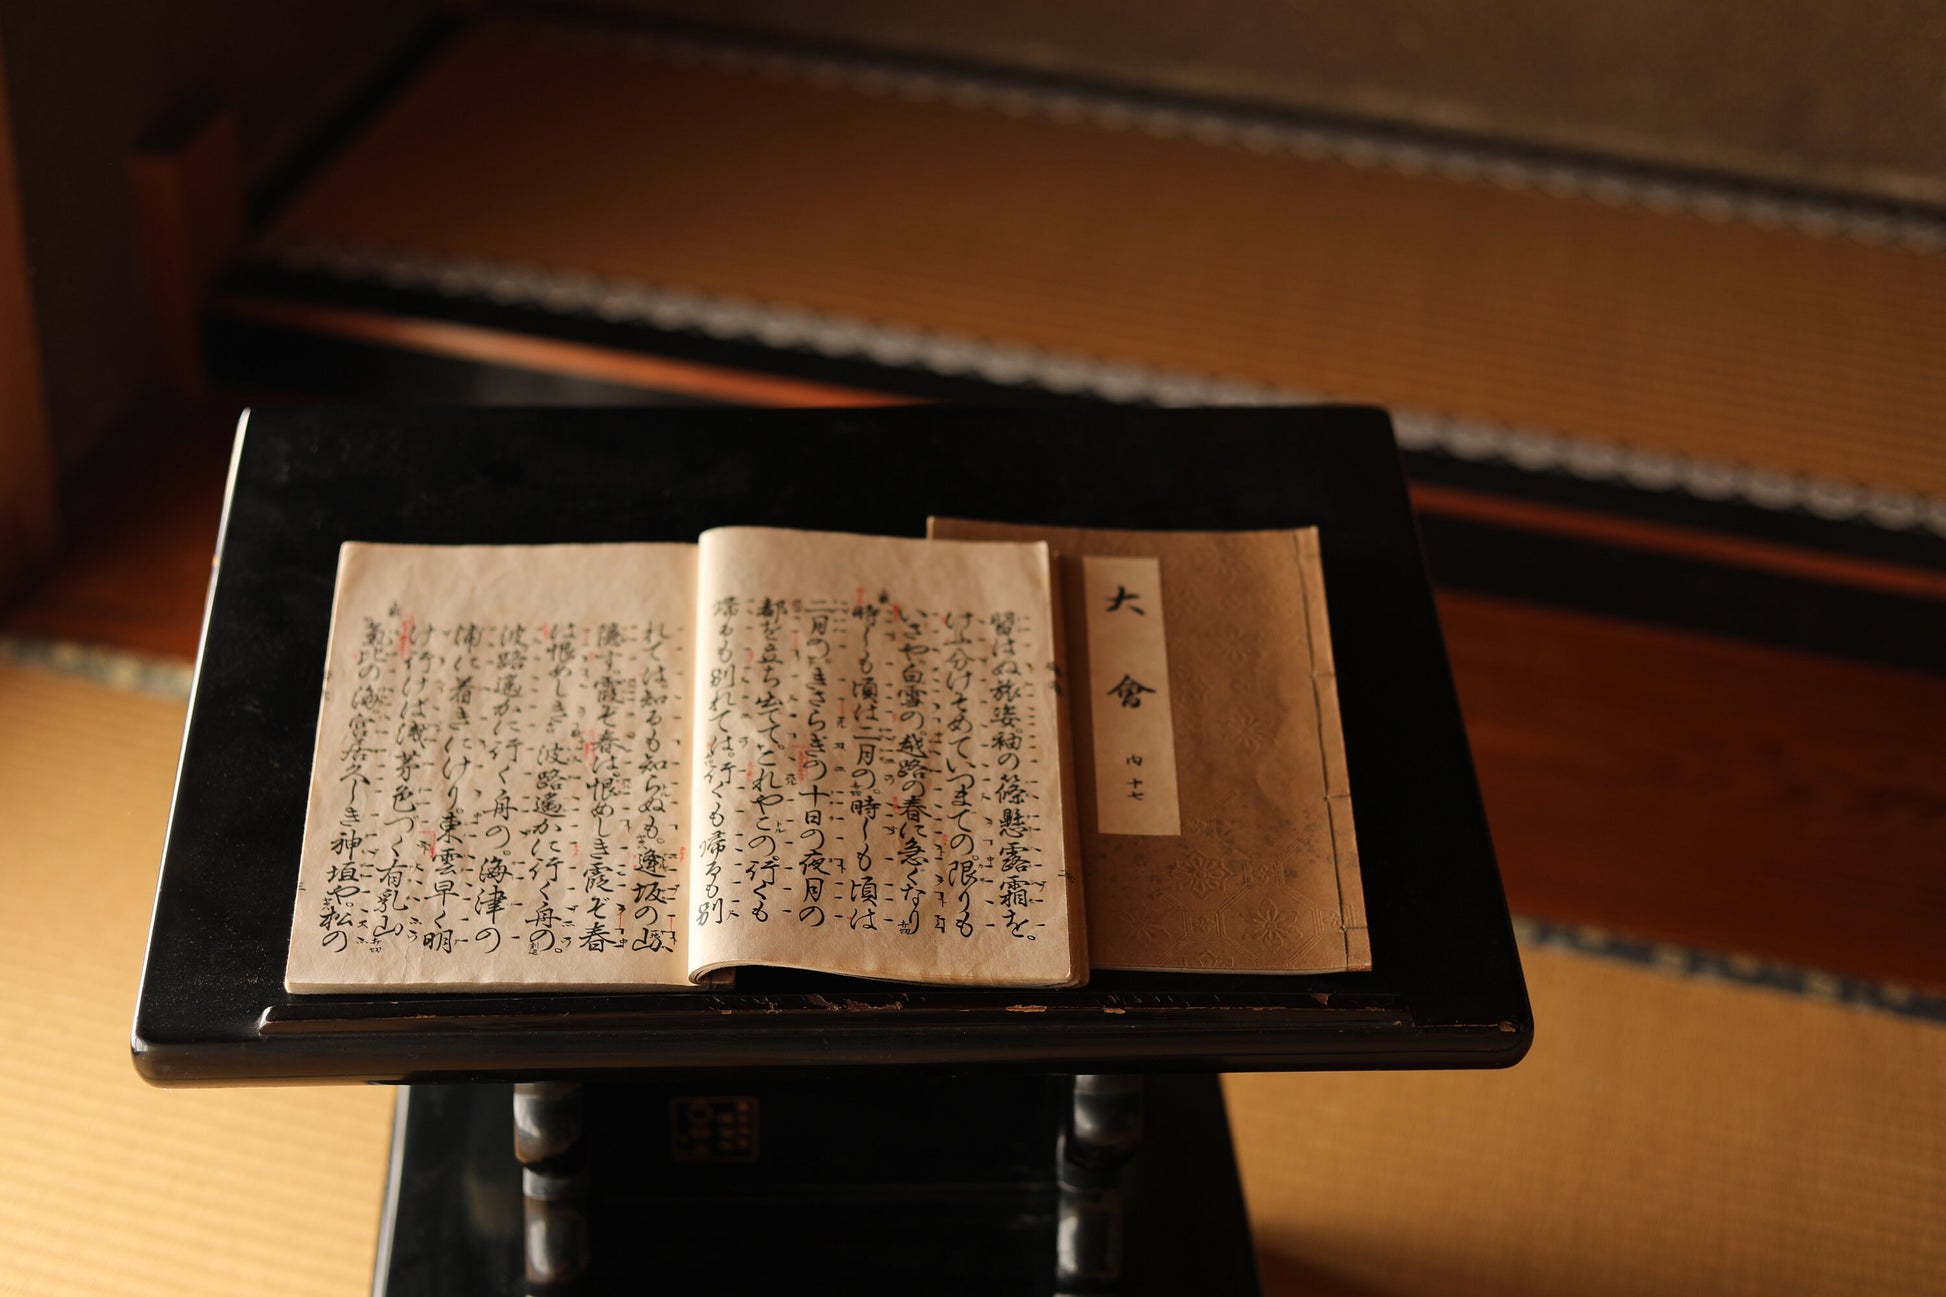 習はぬ旅姿。袖の篠懸露霜を。
けふ分けそめていつまでの。限りも
いさや白雪の。越路の春に急ぐなり
時しも頃は二月の。時しも頃は
二月の。きさらぎの十日の夜月の
都を立ち出でて。これやこの。行くも
帰るも別れては。行くも帰るも別
れては。知るも知らぬも。逢坂の山
隠す霞ぞ春は。恨めしき霞ぞ春
は恨めしき。波路遥かに行く舟の。
波路遥かに行く舟の。海津の
浦に着きにけり。東雲早く明
け行けば浅茅色づく有乳山
気比の海。宮居久しき神垣や。松の
大會
内十七